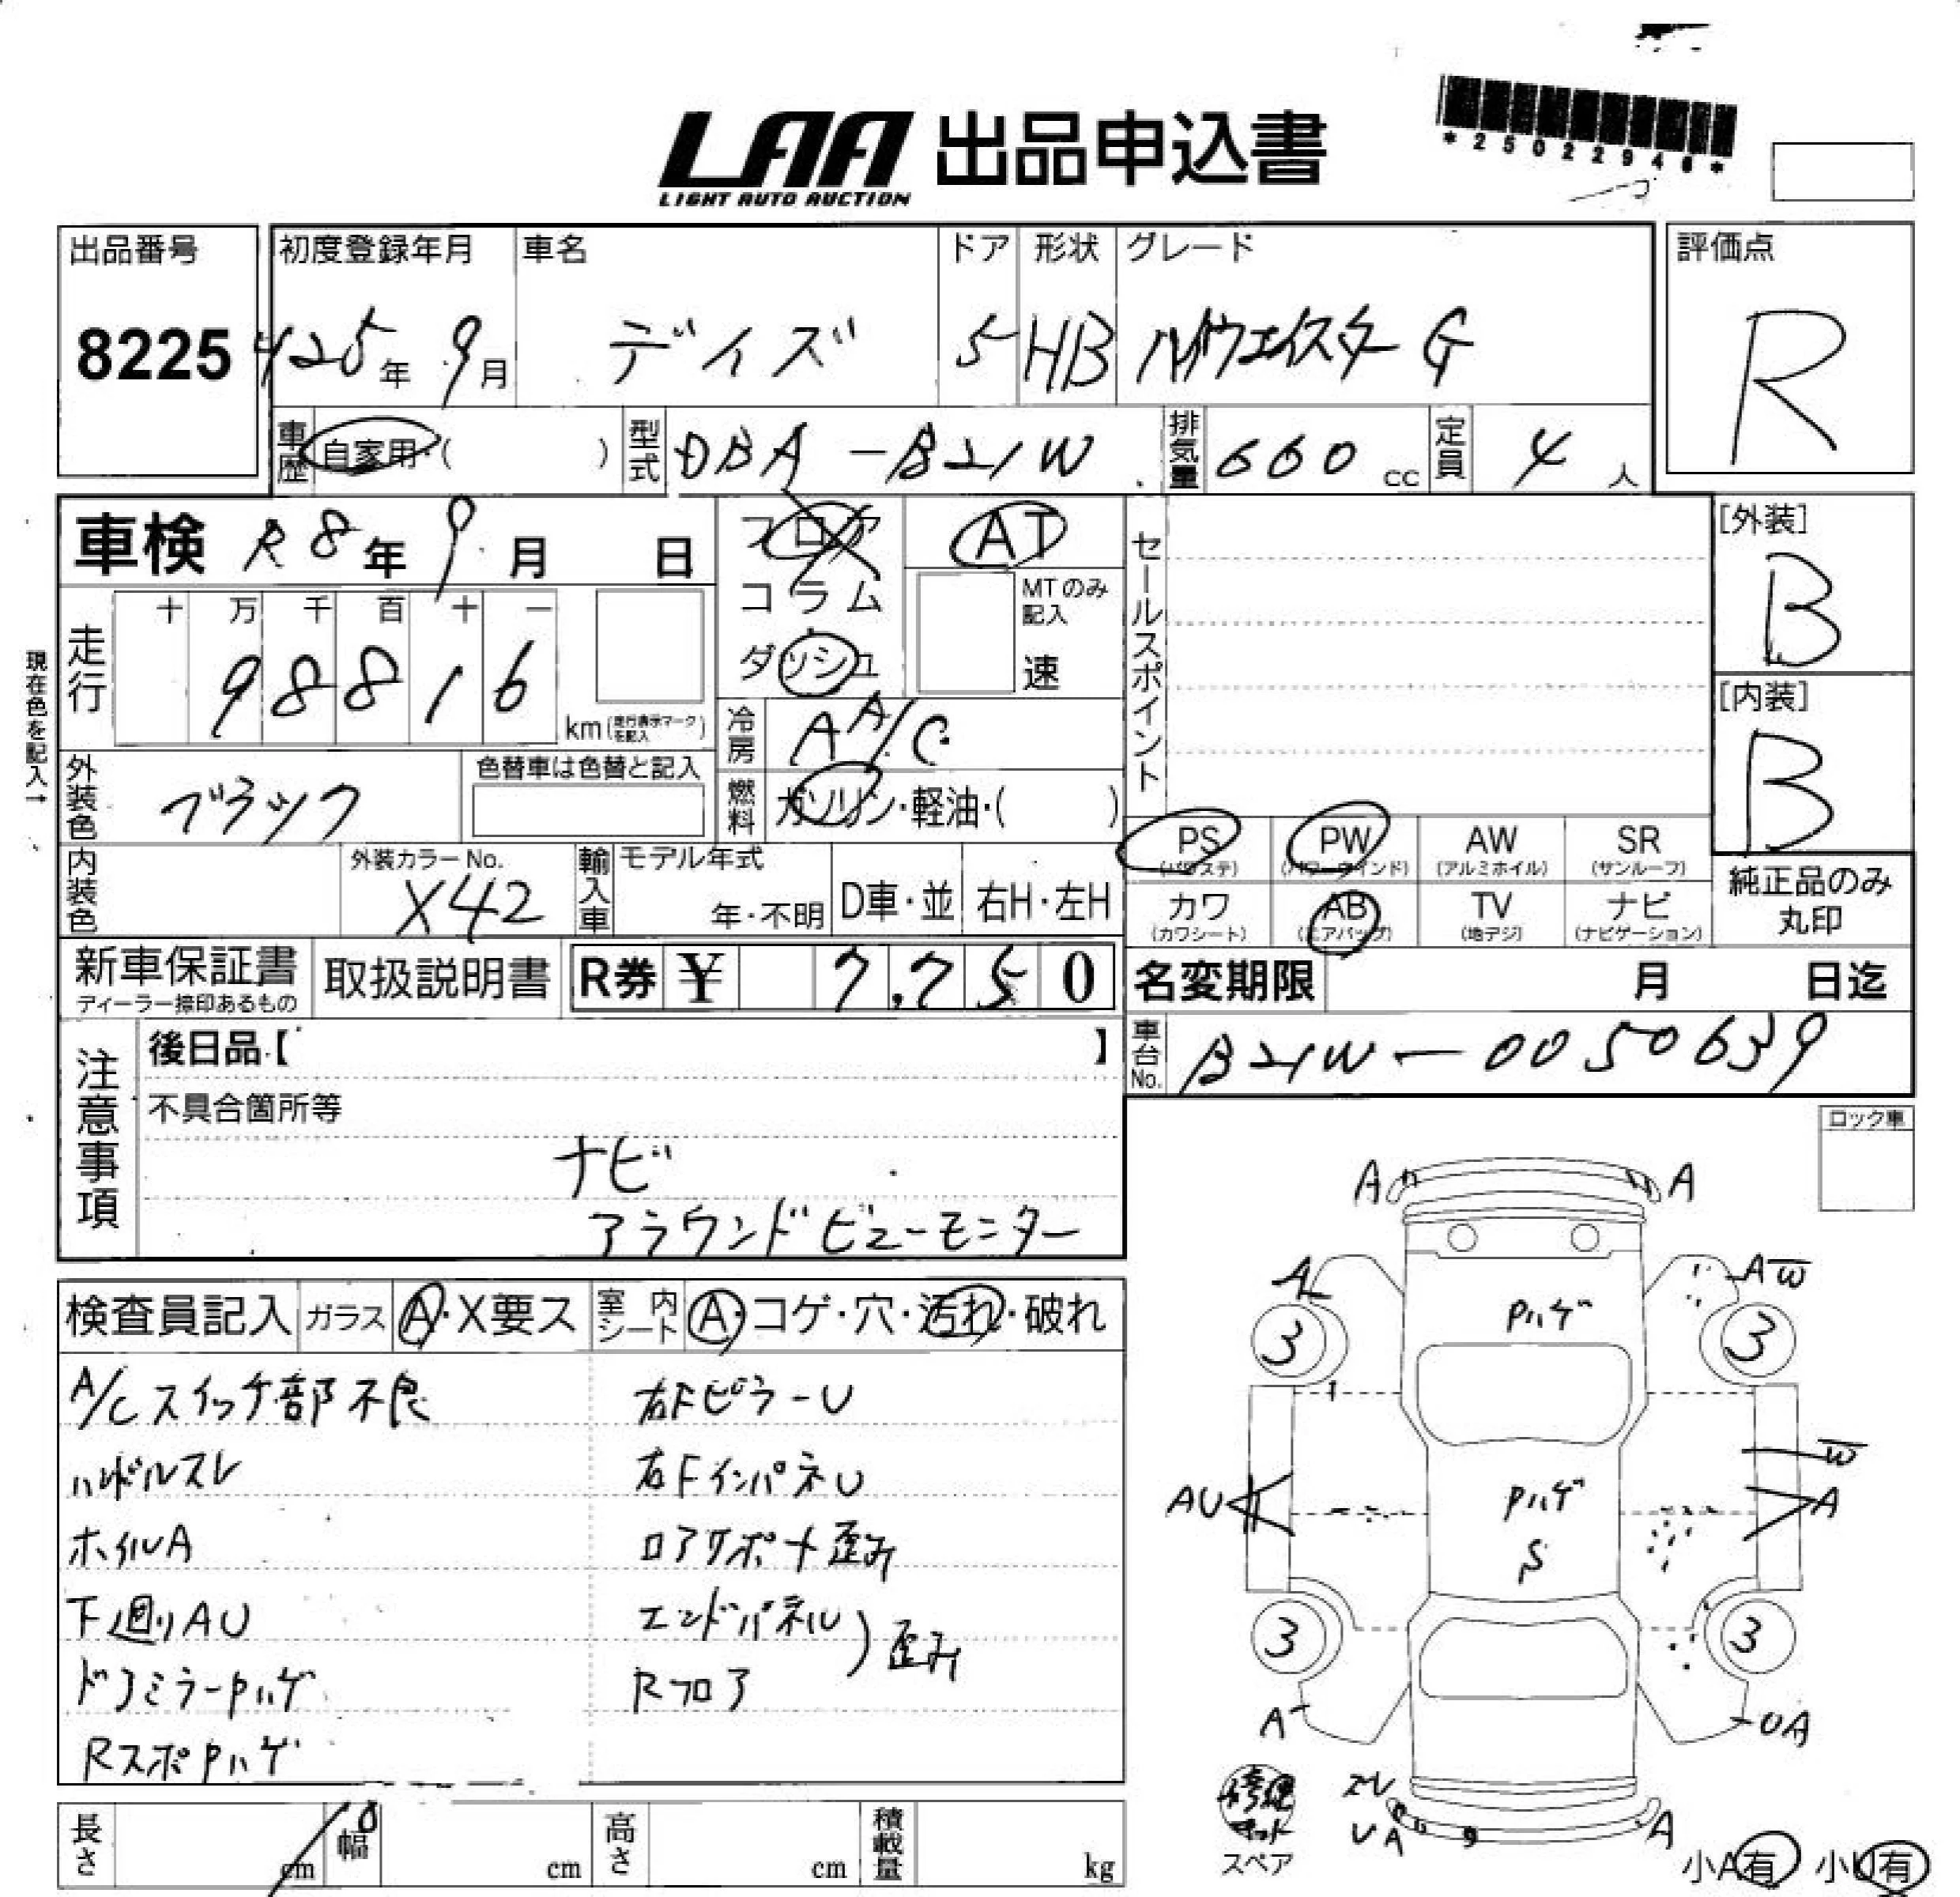 LAA 出品申込書
LIGHT AUTO AUCTION
*25022946*
出品番号
8225
初度登録年月
H25年 9月
車名
デイズ
ドア
5
形状
HB
グレード
ハイウェイスター G
評価点
R
車歴 自家用・( )
型式 DBA-B21W
排気量 660 cc
定員 4 人
車検 R8年 9月 日
フロア
コラム
ダッシュ
AT
MTのみ記入
速
セールスポイント
[外装]
B
[内装]
B
現在色を記入→
走行
十 万 千 百 十 一
98816
km(走行表示マークを記入)
冷房 AA/C
燃料 ガソリン・軽油・( )
外装色 ブラック
色替車は色替と記入
内装色
外装カラーNo.
X42
輸入車
モデル年式
年・不明
D車・並
右H・左H
PS (パワステ)
PW (パワーウインド)
AW (アルミホイル)
SR (サンルーフ)
カワ (カワシート)
AB (エアバッグ)
TV (地デジ)
ナビ (ナビゲーション)
純正品のみ丸印
新車保証書
ディーラー捺印あるもの
取扱説明書
R券 ¥ 7,750
名変期限 月 日迄
車台No. B21W-0050639
注意事項
後日品【 】
不具合箇所等
ナビ
アラウンドビューモニター
ロック車
検査員記入
ガラス A・X要ス
室内シート A・コゲ・穴・汚れ・破れ
A/Cスイッチ部不良
ハンドルスレ
ホイルA
下廻りAU
ドアミラーPハゲ
RスポPハゲ
右FピラーU
右FインパネU
ロアサポート歪み
エンドパネル
Rフロア
歪み
A A
A AW
Pハゲ
3 3
W
AU A
Pハゲ
S
3 3
A UA
修理キット
スペア
UA A
小A有 小U有
長さ cm
幅 cm
高さ cm
積載量 kg